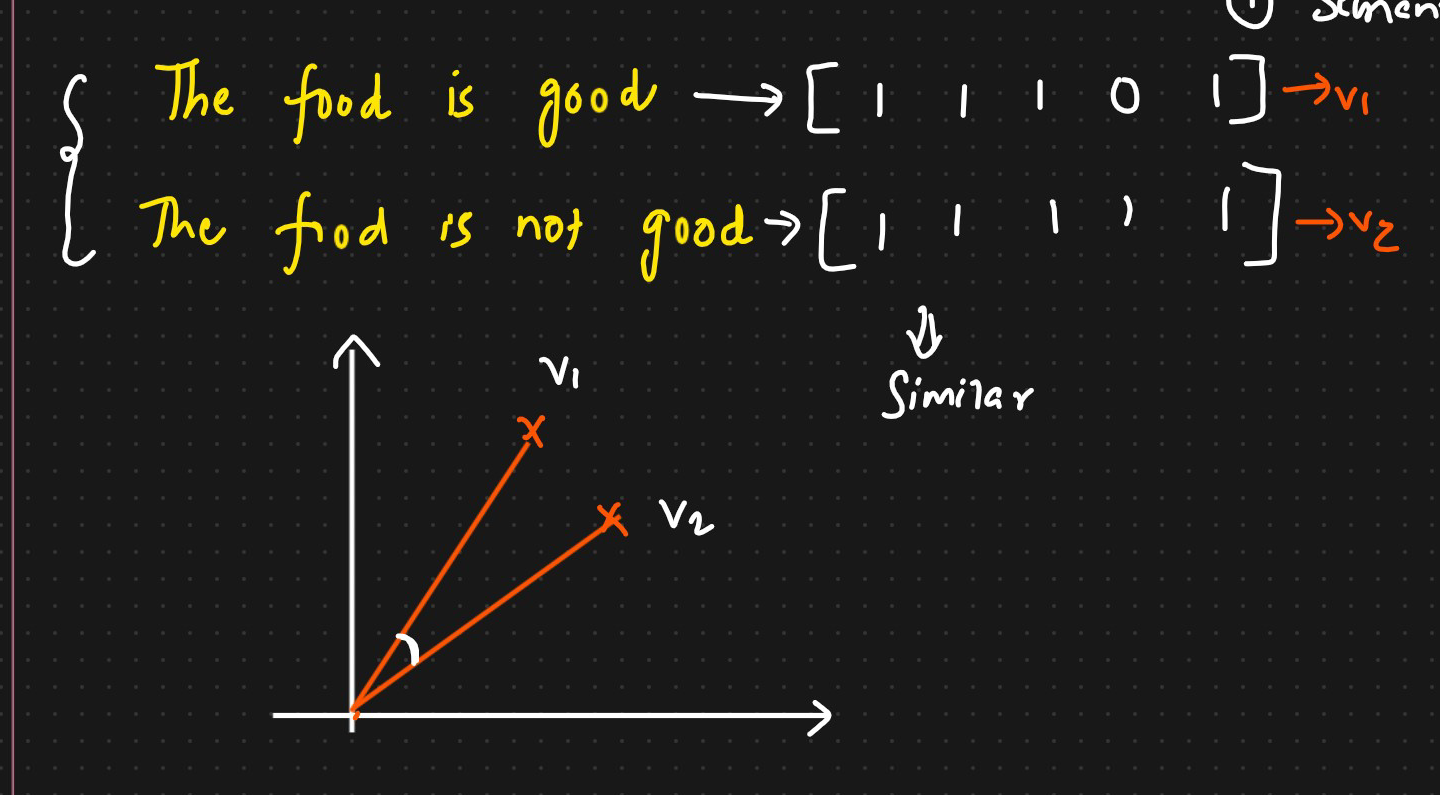 ①
The food is good → [ 1 1 1 0 1 ] → v1
The food is not good → [ 1 1 1 1 1 ] → v2
⇓
Similar
v1
v2